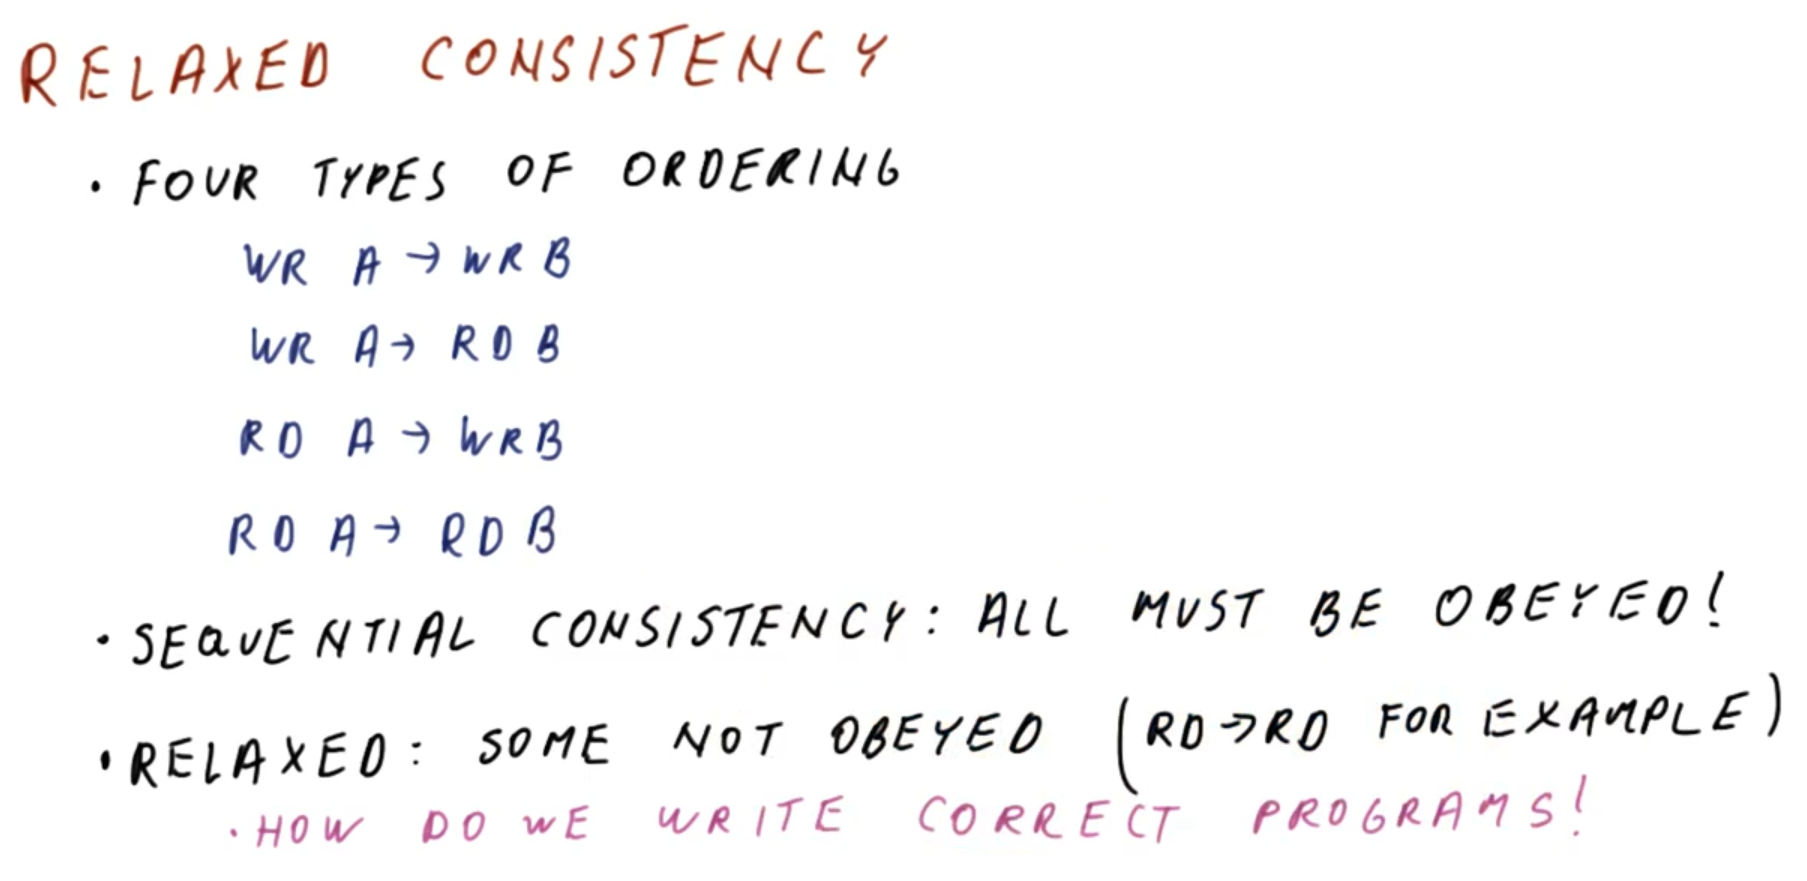 RELAXED CONSISTENCY
• FOUR TYPES OF ORDERING
WR A → WR B
WR A → RD B
RD A → WR B
RD A → RD B
• SEQUENTIAL CONSISTENCY: ALL MUST BE OBEYED!
• RELAXED: SOME NOT OBEYED (RD → RD FOR EXAMPLE)
• HOW DO WE WRITE CORRECT PROGRAMS!